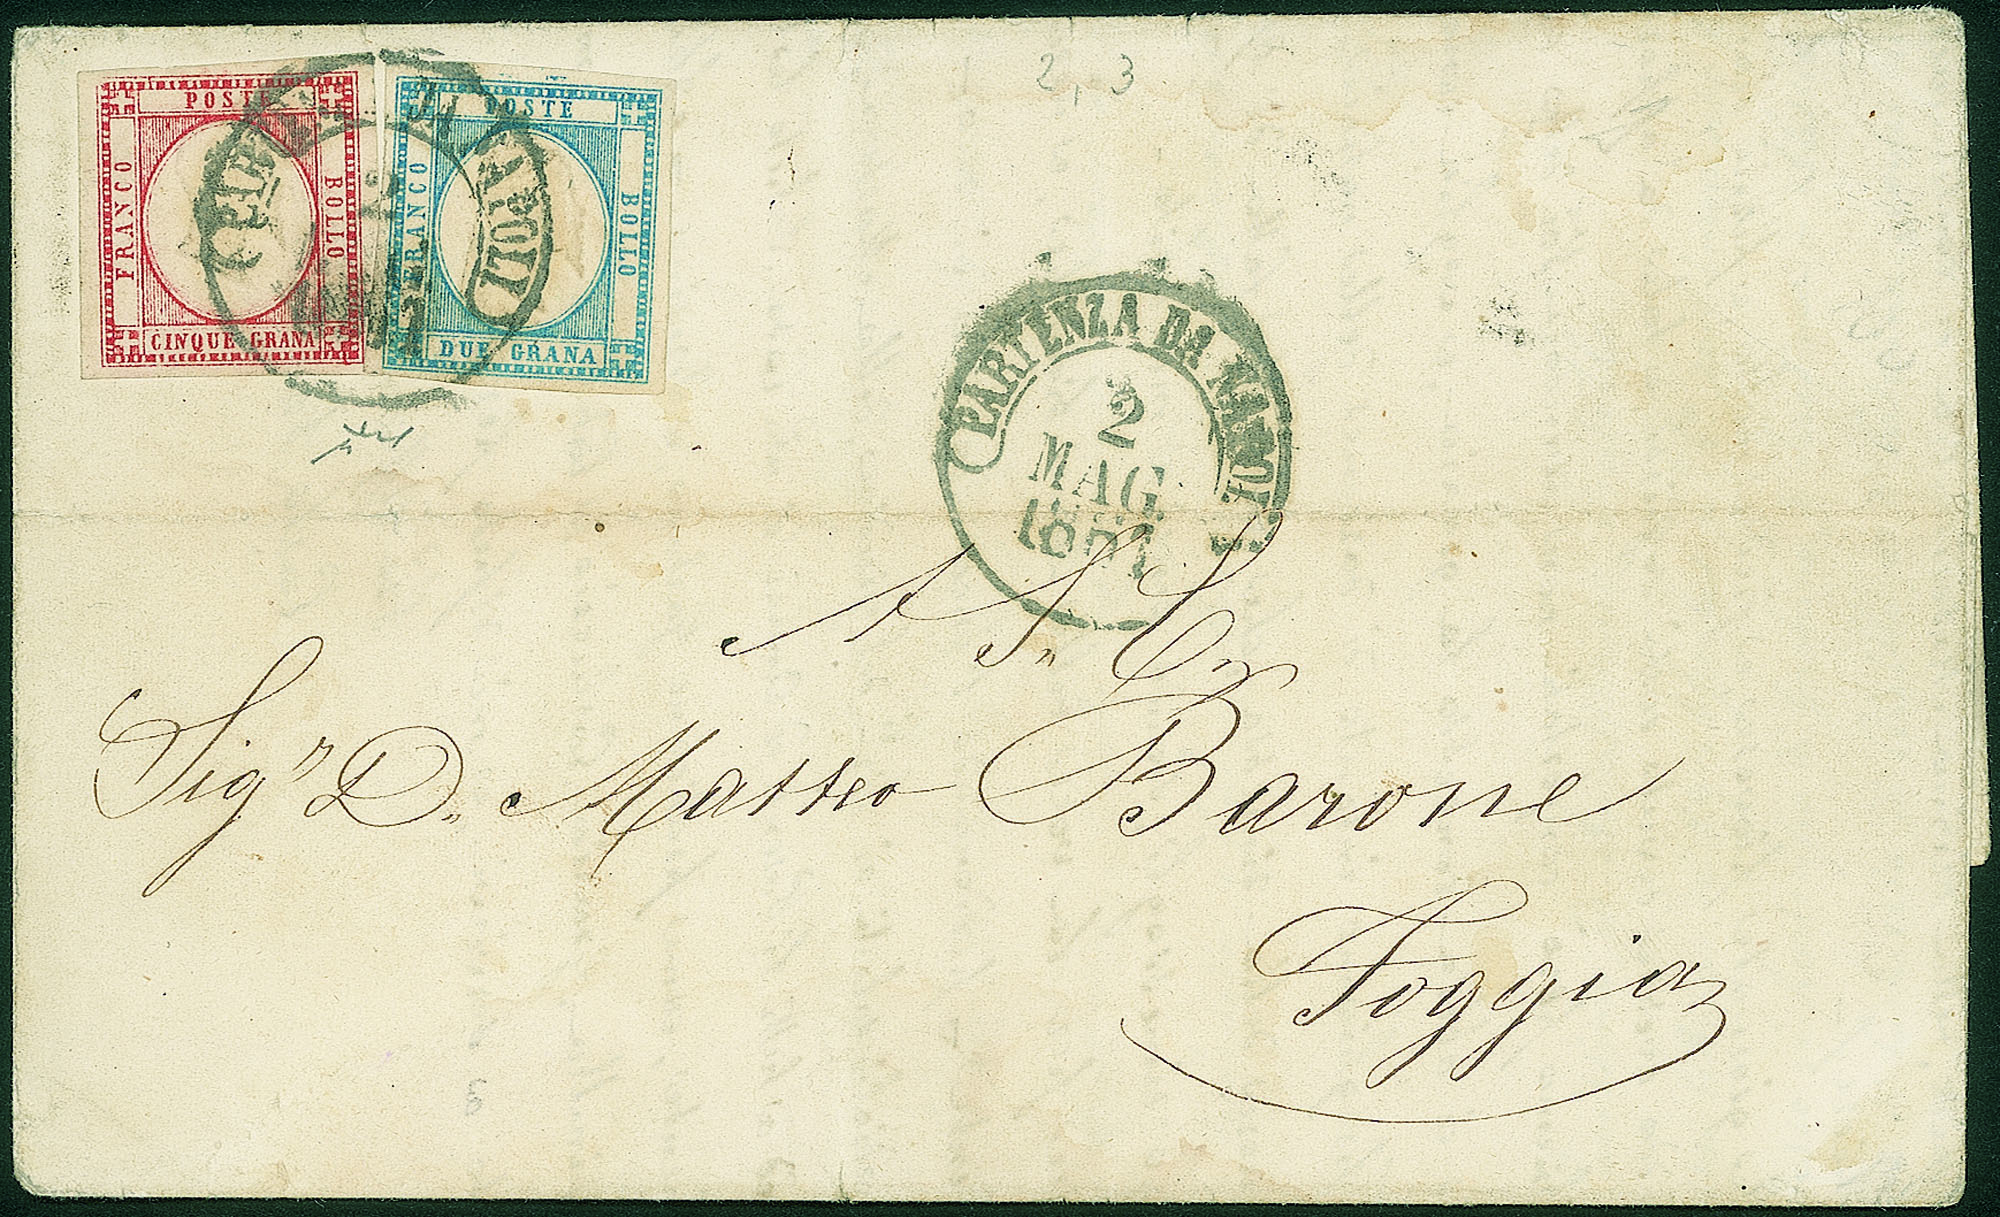 2, 3
POSTE
FRANCO
BOLLO
CINQUE GRANA
POSTE
FRANCO
BOLLO
DUE GRANA
PARTENZA DA NAPOLI
2
MAG.
A S. E.
Sig.r D. Matteo Barone
Foggia
5